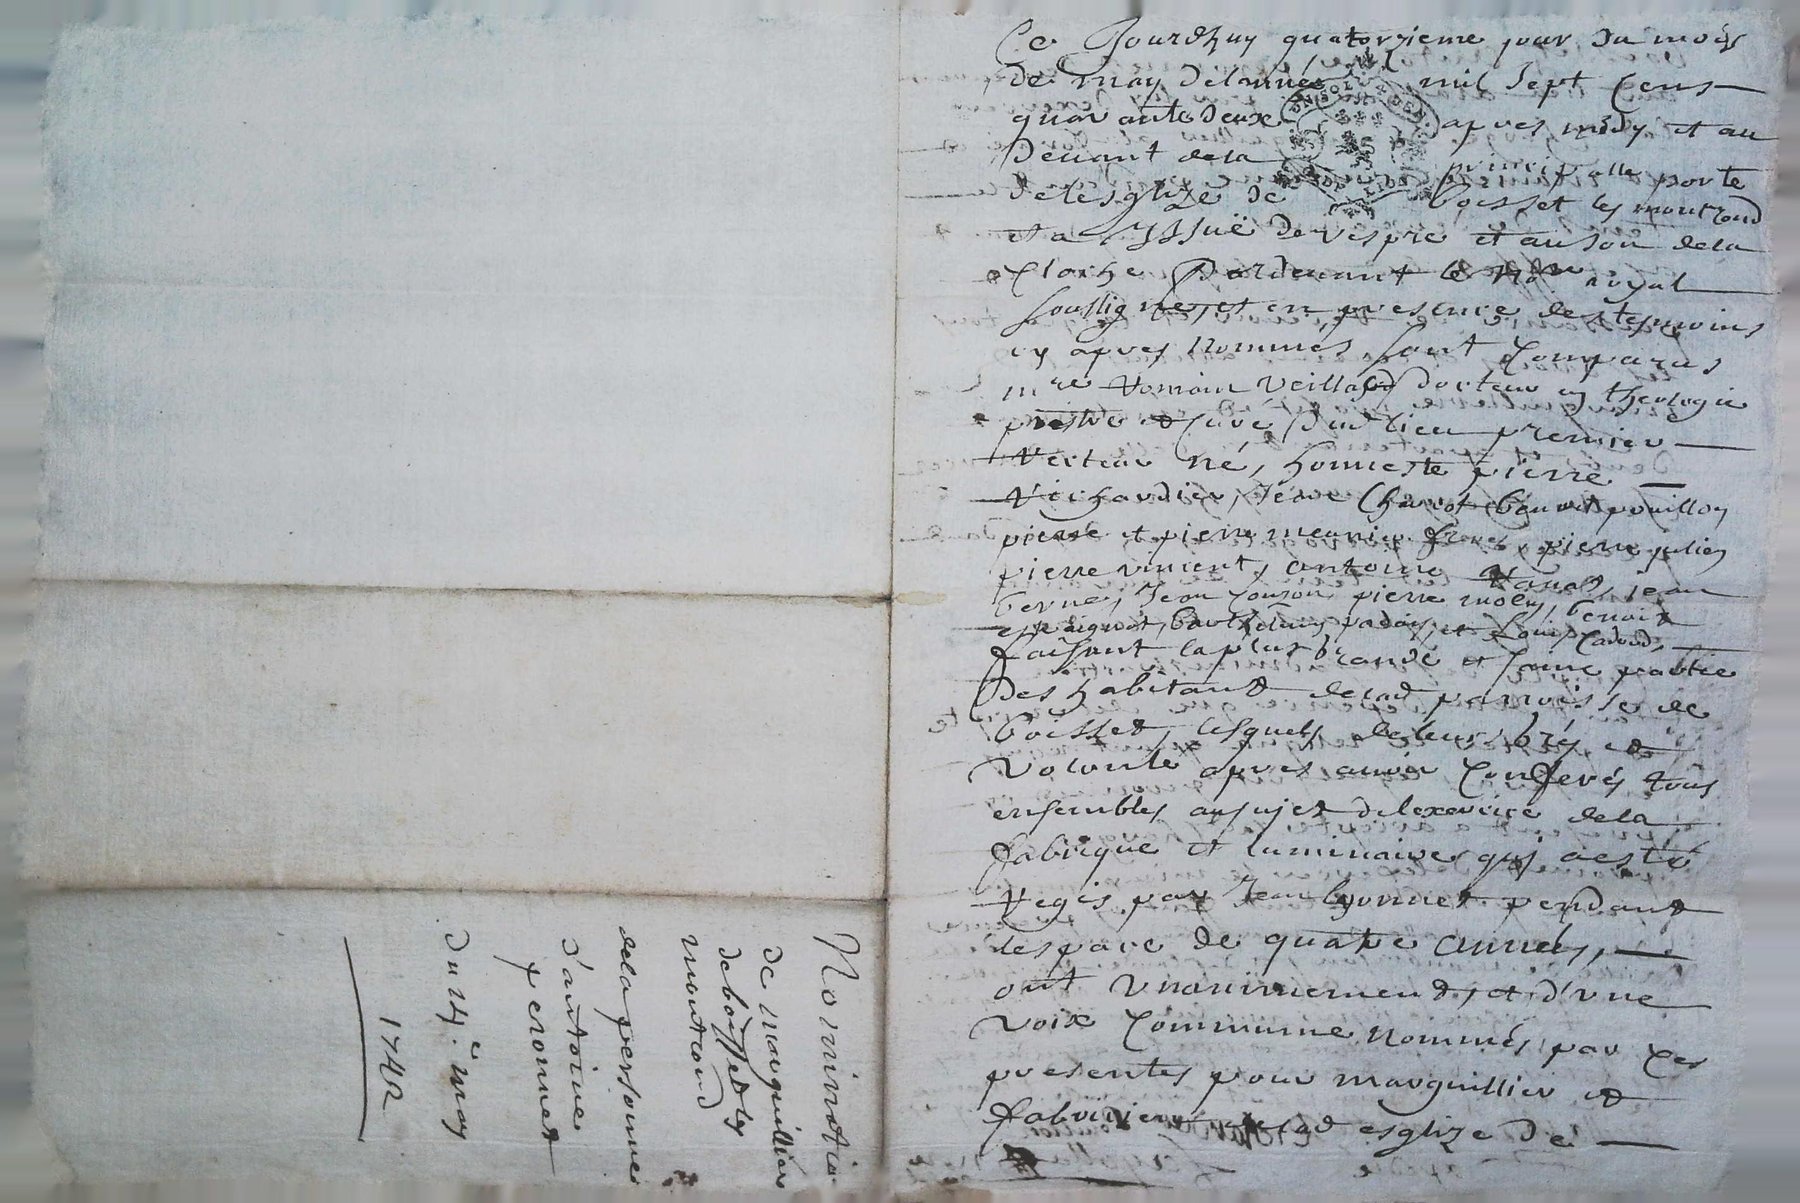 Ce Jourdhuy quatorzieme jour du mois
de may delannée mil sept Cens
quarante deux apres midy et au
devant dela principalle porte
delesglize de boisset les montrond
et a lissuë de vespre et au son dela
Cloche Pardevant le nore royal
soussigné, et en presence des tesmoins
cy apres nommés sont Comparus
mre Romain Veillard docteur en theologie
prestre et curé dud lieu premier
Recteur né, honneste pierre
Richardier, Jean Charot benoit pouillon
pierre et pierre meunier freres, pierre julien
pierre vincent, antoine jean
berne, Jean pierre benoit
barthelemy et Louis
faisant la plus grande et saine partie
des habitant delad parroisse de
boisset, lesquels deleur gré et
volonté apres avoir Conferés tous
ensembles au sujet delexercice dela
fabrique et luminaire qui aesté
Regis par Jean lyonnet pendant
lespace de quatre années,
ont Vnanimement, et d'vne
voix Commune nommés par Ces
presentes pour marguillier et
fabricien delad esglize de
Nomination
de marguillier
deboisset les
montrond
dela personne
d'antoine
peronnet
du 14.e may
1742